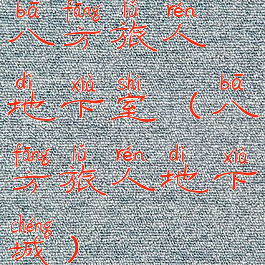 bā fāng lǚ rén
八方旅人
dì xià shì bā
地下室（八
fāng lǚ rén dì xià
方旅人地下
chéng
城）